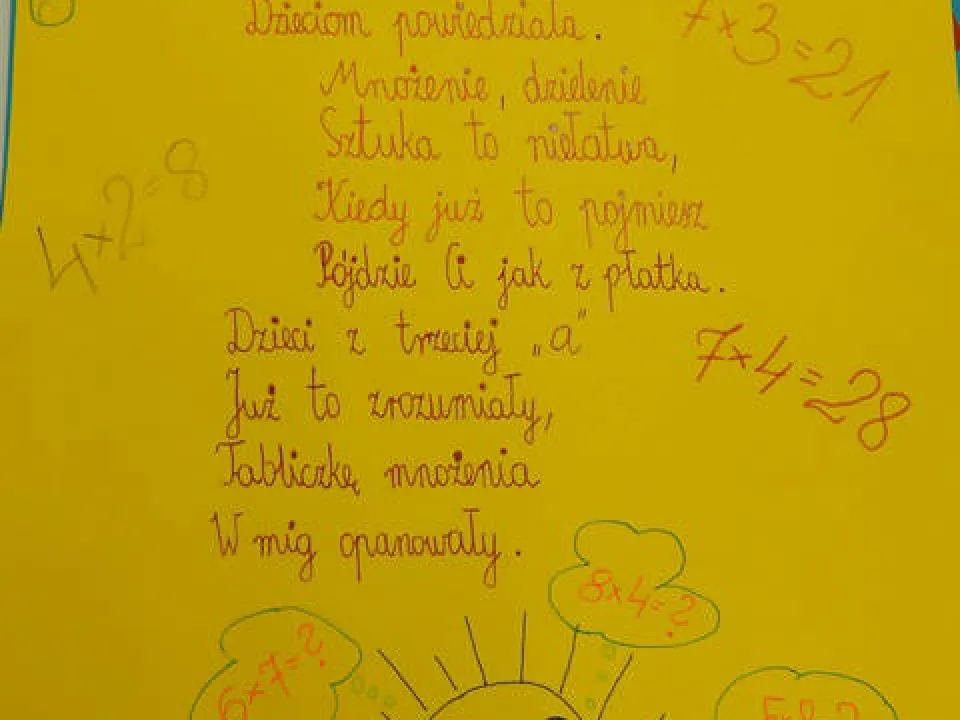 Dzieciom powiedziała.
7×3=21
Mnożenie, dzielenie
Sztuka to niełatwa,
4×2=8
Kiedy już to pojmiesz
Pójdzie Ci jak z płatka.
Dzieci z trzeciej „a"
7×4=28
Już to zrozumiały,
Tabliczkę mnożenia
W mig opanowały.
8×4=?
6×7=?